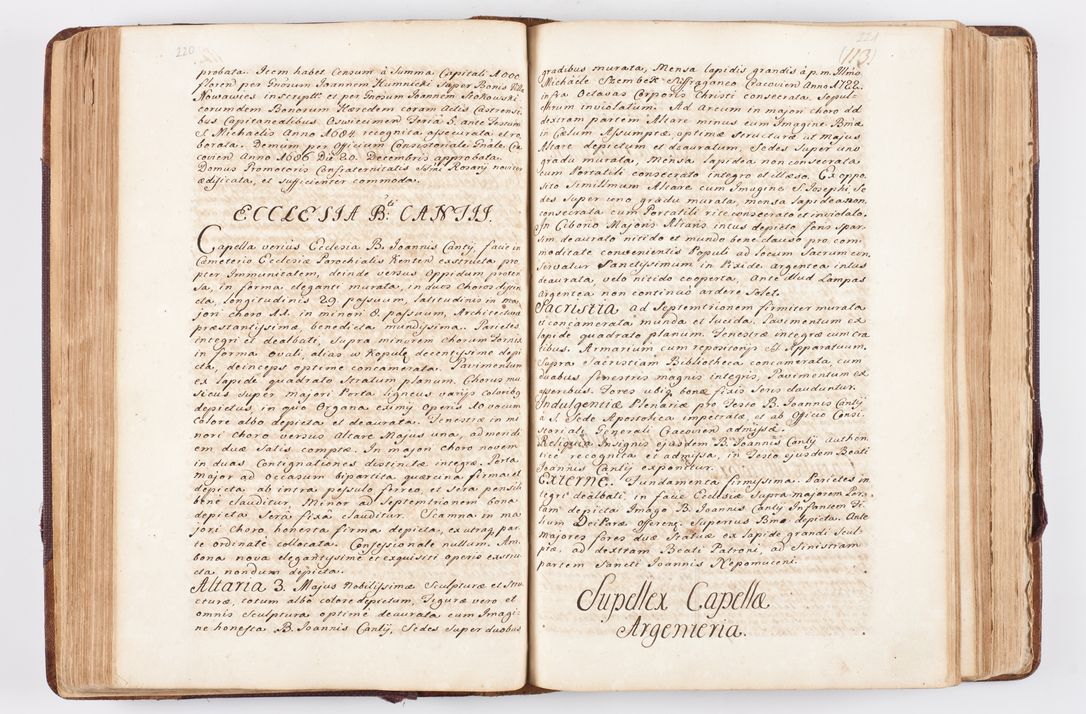 220
probata. Item habet Censum à Summa Capitali 1000
floren per Gnosum Joannem Humnicki Super Bonis Villæ
Nowawies inscripta et per Gnosum Joannem Stokowski
eorumdem Bonorum Hæredem coram Actis Castrensi,
bus Capitanealibus Oswiecimen Feria 5. ante Festum
S. Michaelis Anno 1684 recognita assecurata et ro,
borata. Demum per Officium Consistoriale Gnale Cra
covien Anno 1686 Die 20. Decembris approbata.
Domus Promotoris Confraternitatis SSmi Rosarij noviter
ædificata, et sufficienter commoda.
ECCLESIA B:ti CANTII.
Capella verius Ecclesia B. Joannis Cantij, fave in
Cæmeterio Ecclesiæ Parochialis Kenten exstructa pro
pter Immunitatem, deinde versus Oppidum proten
sa, in forma eleganti murata, in duos Choros distin
cta, longitudinis 29. passuum, latitudinis in ma,
jori choro 11. in minori 8. passuum, Architectura
præstantissimæ, benedicta mundissima. Parietes
integri et dealbati, Supra minorem chorum Fornix
in forma ovali, alias w Kopułę decentissime depi
cta, deinceps optime concamerata. Pavimentum
ex lapide quadrato Stratum planum. Chorus mu
sicus super majori Porta ligneus varijs coloribq
depictus, in quo Organa eximij Operis 10 vocum
colore albo depicta et deaurata. Fenestræ in mi
nori Choro versus Altare Majus una, ad meridi
em duæ Satis comptæ. In majori choro novem
in duas Contignationes distinctæ integræ. Porta
major ad occasum bipartita quercina firma et
depicta ab intra pessulo ferreo, et sera pensili
bene clauditur. Minor ad Septemtrionem bona
depicta Sera fixa clauditur. Scamna in ma
jori Choro honesta firma depicta, ex utraq par
te ordinate collocata. Confessionale nullum. Am,
bona nova elegantissime et exquisiti operis exstru
cta nondum depicta.
Altaria 3. Majus Nobilissimæ Sculpturæ et Stru
cturæ, totum albo colore depictum, Figuræ vero et
omnis Sculptura optime deaurata cum Imagi:
ne honesta B. Joannis Cantij, Sedes super duobus
221
(113)
gradibus murata, Mensa lapidis grandis à p. m. Illmo
Michaele Szembek Suffraganeo Cracovien Anno
infra Octavas Corporis Christi consecrata, Sepul
chrum inviolatum. Ad Arcum in majori choro ad
dextram partem Altare minus cum Imagine Bmæ
in Cœlum Assumptæ, optimæ Structuræ ut majus
Altare depictum et deauratum, Sedes super uno
gradu murata, Mensa lapidea non consecrata
cum Portatili consecrato integro et illæso. Ex oppo
sito Simillimum Altare cum Imagine S. Josephi, Se
des super uno gradu murata, mensa lapidea non
consecrata cum Portatili rite consecrato et inviolato.
In Ciborio Majoris Altaris intus depicto foris spar
sim deaurato nitido et mundo bene clauso pro com,
moditate convenientis Populi ad locum Sacrum con
servatur Sanctissimum in Pixide argentea intus
deaurata, velo nitido cooperta, Ante illud Lampas
argentea non continuo ardere solet.
Sacristia ad Septemtrionem firmiter murata
et concamerata munda et lucida, Pavimentum ex
lapide quadrato planum. Fenestræ integræ cum Cra
tibus. Armarium cum repositorijs pro Apparatuum.
Supra Sacristiam Bibliotheca concamerata cum
duabus fenestris magnis integris, Pavimentum ex
asseribus. Fores ubiq bonæ fixis seris clauduntur.
Indulgentiæ Plenariæ pro Festo B. Joannis Cantij
à S. Sede Apostolica impetratæ, et ab Officio Consi
storiali Generali Cracovien admissæ.
Reliquiæ Insignis ejusdem B. Joannis Cantij authen
tice recognita et admissa, in Festo ejusdem Beati
Joannis Cantij exponitur.
Externe. Fundamenta firmissima. Parietes in
tegri dealbati, in facie Ecclesiæ Supra majorem Por,
tam depicta Imago B. Joannis Cantij Infantem Fi
lium Deiparæ offerens Superius Bmæ depicta. Ante
majores fores duæ Statuæ ex lapide grandi Scul,
ptæ, ad dextram Beati Patroni, ad Sinistram
partem Sancti Joannis Nepomuceni.
Supellex Capellæ
Argenteria.